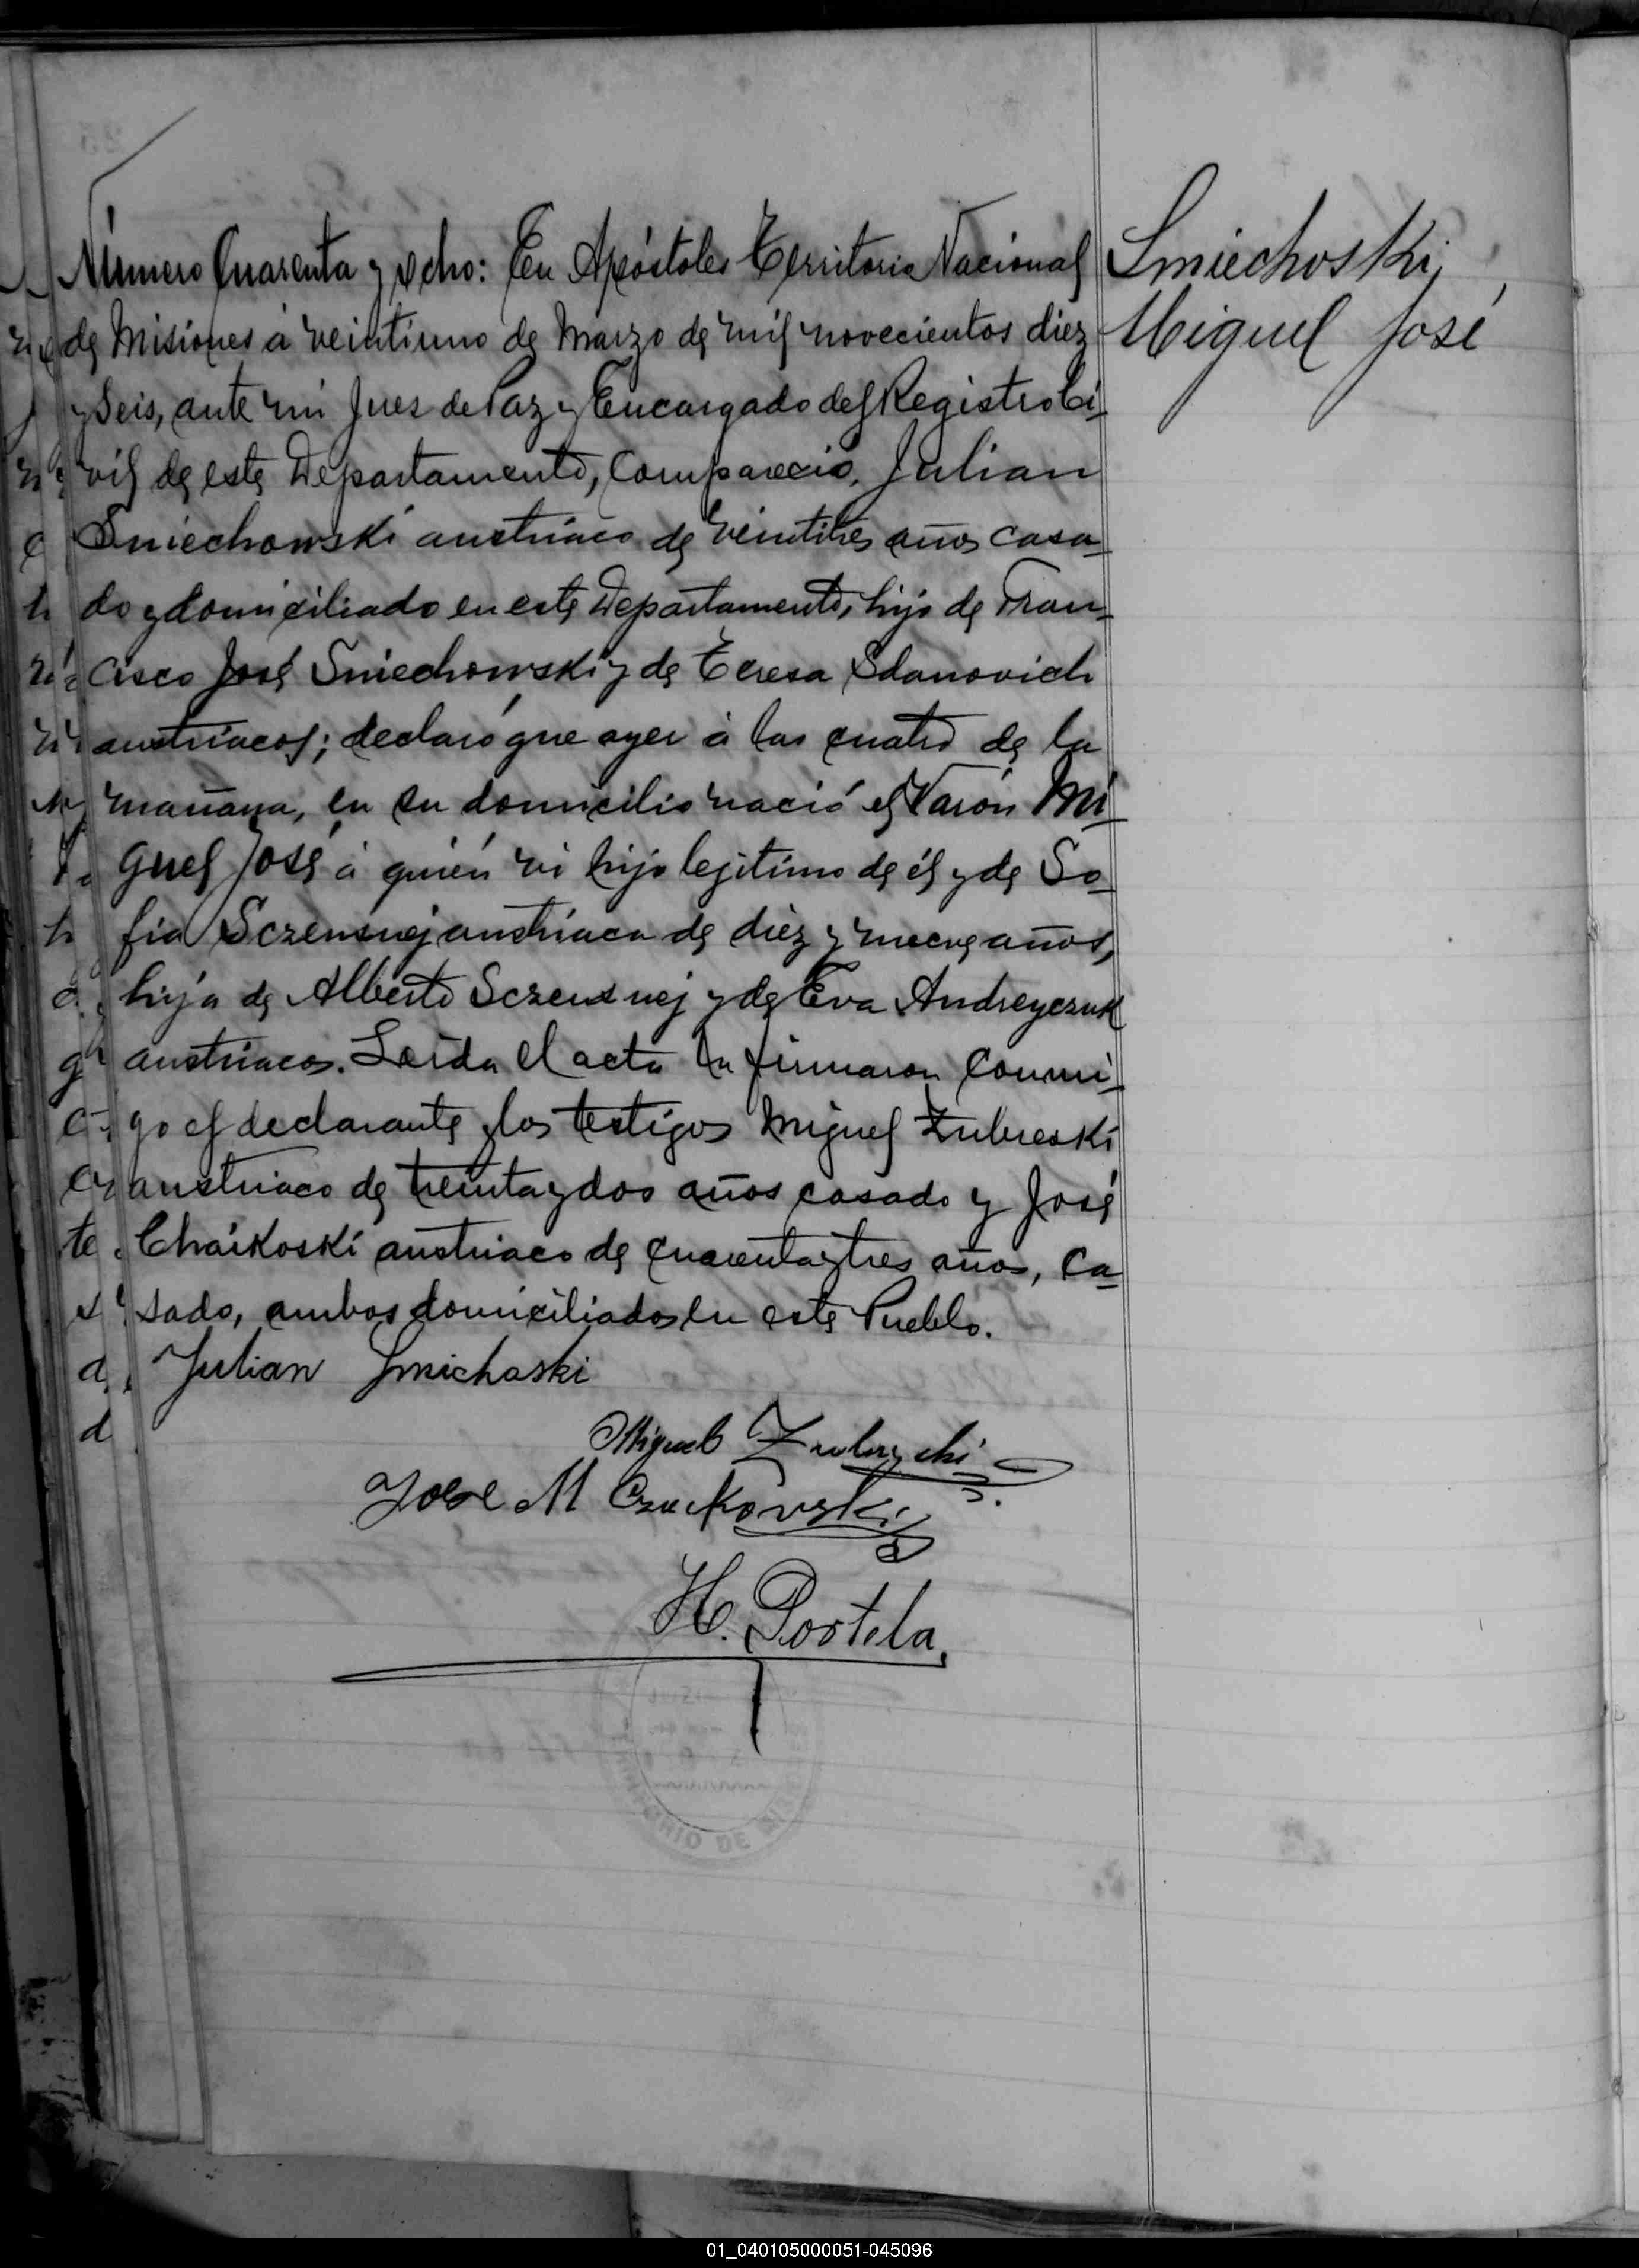 Número Cuarenta y ocho: En Apóstoles Territorio Nacional
de Misiones á veintiuno de Marzo de mil novecientos diez
y seis, ante mi Juez de Paz y Encargado del Registro Ci-
vil de este Departamento, Compareció, Julian
Smiechowski austriaco de veintitres años casa-
do y domiciliado en este Departamento, hijo de Fran-
cisco José Smiechowski y de Teresa Sdanovich
austriacos; declaró que ayer á las cuatro de la
mañana, en su domicilio nació el Varón Mi-
guel José á quién vi hijo legitimo de él y de So-
fia Sczensnej austriaca de diez y nueve años,
hija de Alberto Sczensnej y de Eva Andreyczuk
austriacos. Leida el acta la firmaron conmi-
go el declarante y los testigos Miguel Zubreski
austriaco de treinta y dos años casado y José
Chaikoski austriaco de cuarenta y tres años, ca-
sado, ambos domiciliados en este Pueblo.
Julian Smichoski
Miguel
Jose M Czackowski
H. Portela.
Smiechoski,
Miguel José
RIO DE
01_040105000051-045096